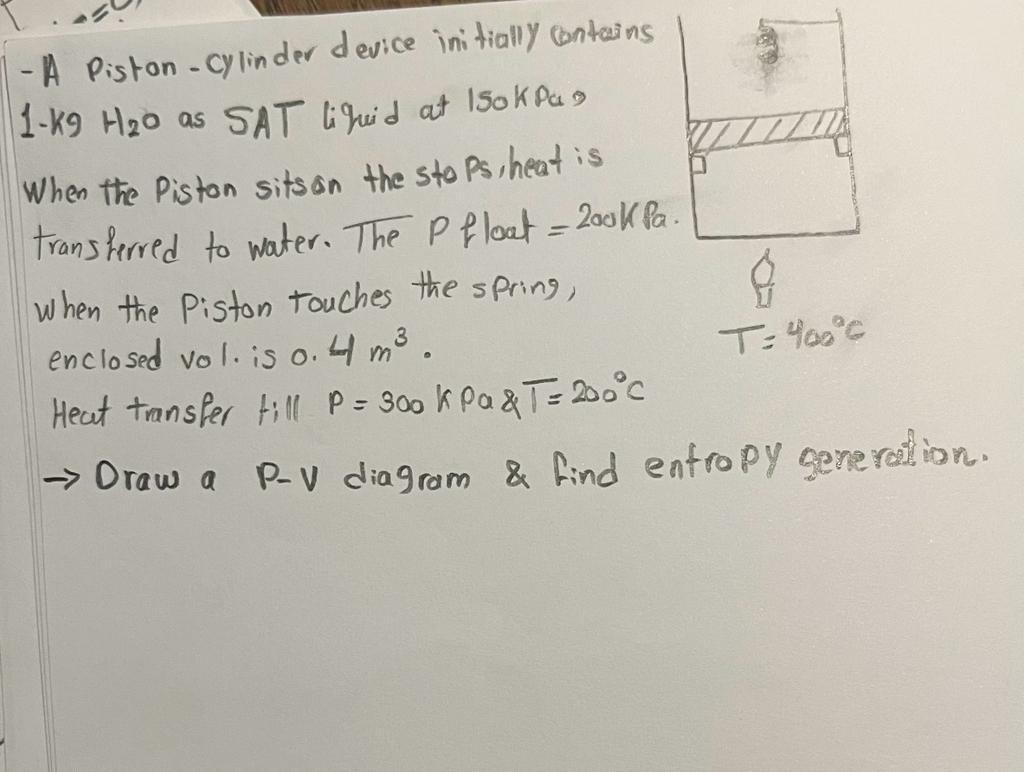 - A Piston-cylinder device initially contains
1-Kg H2O as SAT liquid at 150KPa,
When the Piston sits on the stops, heat is
transferred to water. The P float = 200KPa.
when the Piston touches the spring,
enclosed vol. is 0.4 m³.
T = 400°C
Heat transfer till P = 300 KPa & T = 200°C
→ Draw a P-V diagram & find entropy generation.